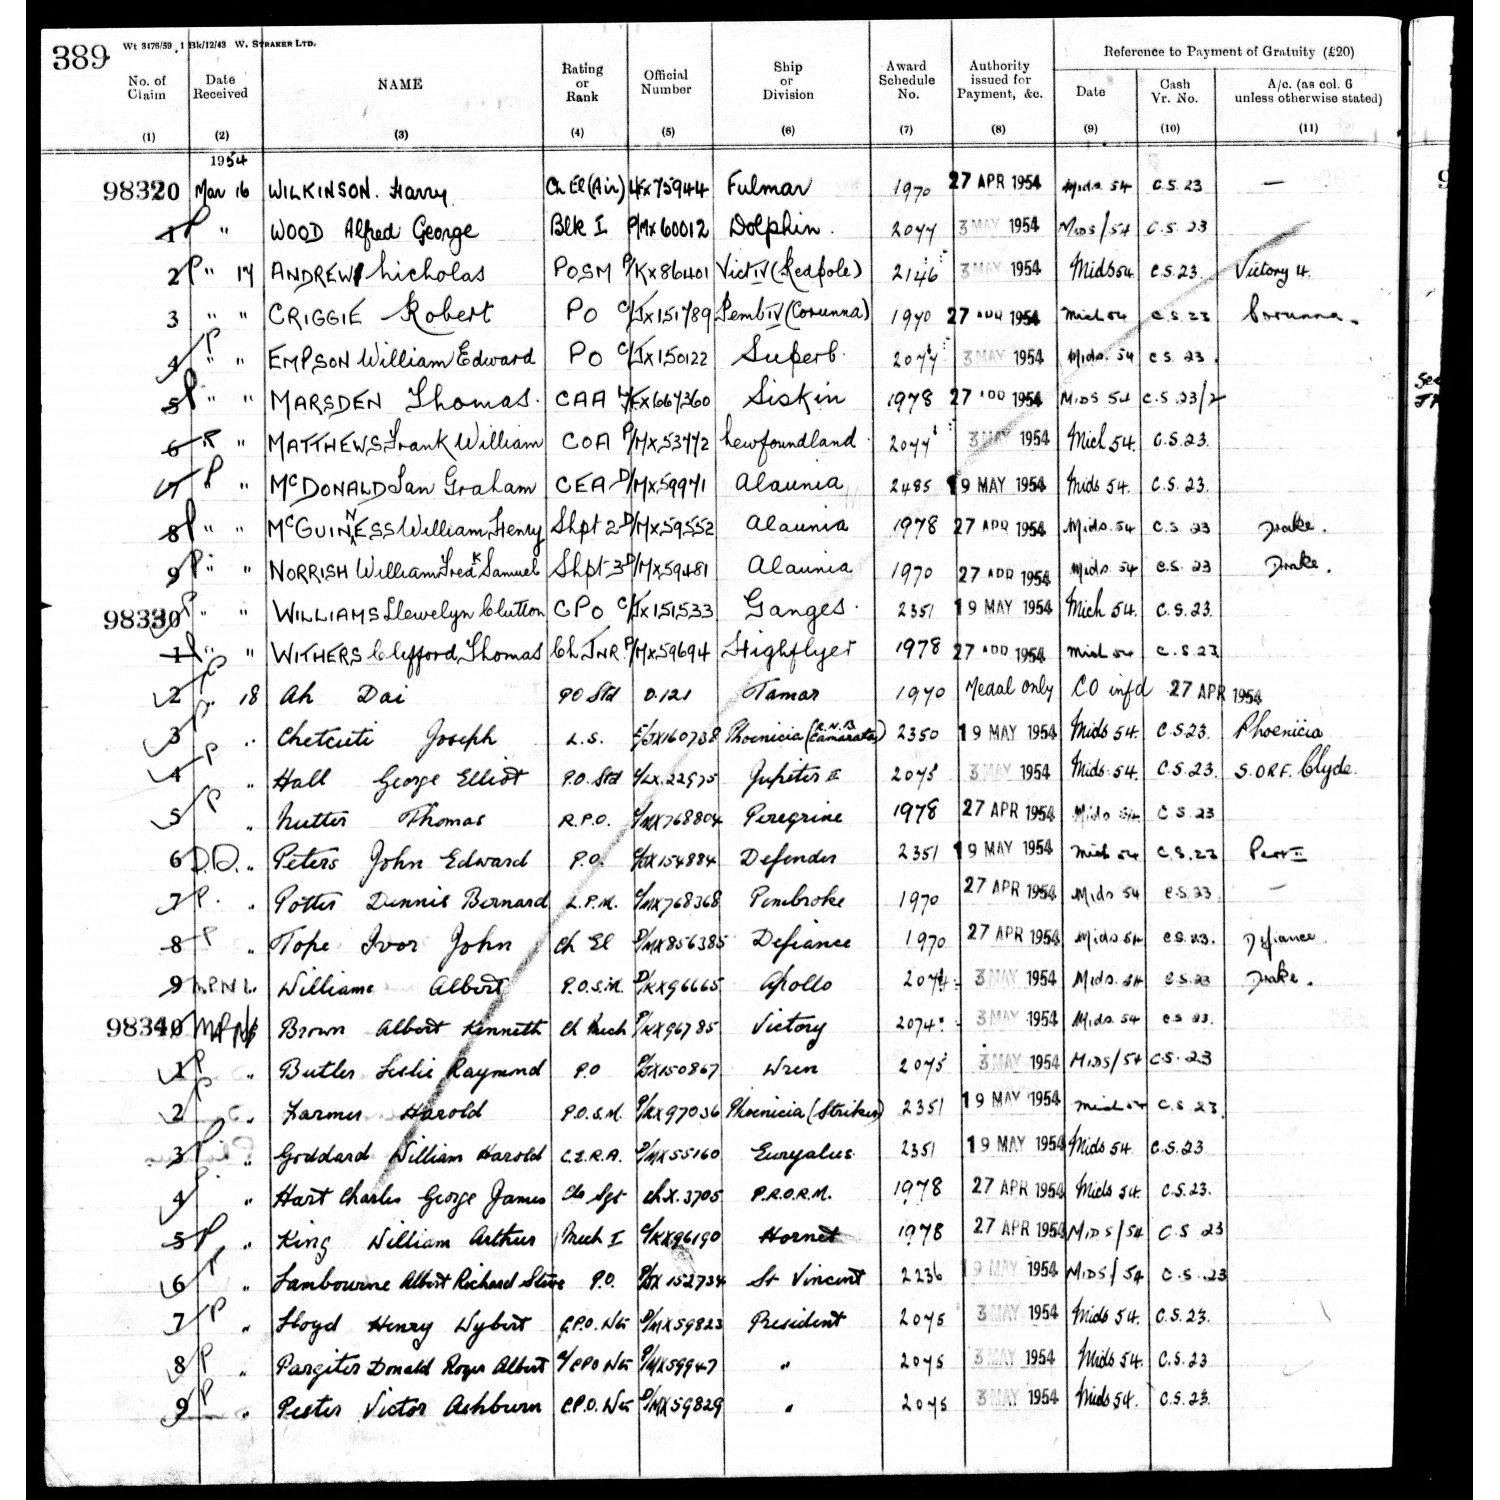 389 Wt 3476/59 1 Bk/12/43 W. STRAKER LTD.
Reference to Payment of Gratuity (£20)
No. of Claim Date Received NAME Rating or Rank Official Number Ship or Division Award Schedule No. Authority issued for Payment, &c. Date Cash Vr. No. A/c. (as col. 6 unless otherwise stated)
(1) (2) (3) (4) (5) (6) (7) (8) (9) (10) (11)
1954
98320 Mar 16 WILKINSON. Harry Ch El (Air) L/FX75944 Fulmar 1970 27 APR 1954 Mids 54 C.S. 23 —
1 P " WOOD Alfred George Blk I P/MX60012 Dolphin. 2077 3 MAY 1954 MIDS/54 C.S. 23
2 P " 17 ANDREW Nicholas POSM P/KX86401 Vict IV (Redpole) 2146 3 MAY 1954 Mids 54 C.S. 23. Victory 4.
3 " " CRIGGIE Robert PO C/JX151789 Pemb IV (Corunna) 1970 27 APR 1954 Mids 54 C.S. 23 Corunna.
4 P " " EMPSON William Edward PO C/JX150122 Superb. 2077 3 MAY 1954 Mids. 54 C.S. 23.
5 P " " MARSDEN Thomas. CAA L/FX667360 Siskin 1978 27 APR 1954 MIDS 54 C.S. 23/2
6 " MATTHEWS Frank William COA P/MX53772 Newfoundland 2077 3 MAY 1954 Mids 54. C.S. 23.
7 P " McDONALD Ian Graham CEA D/MX59971 Alaunia 2485 19 MAY 1954 Mids 54. C.S. 23.
8 P " " McGUINNESS William Henry Shpt 2 D/MX59552 Alaunia 1978 27 APR 1954 Mids. 54 C.S. 23 Drake.
9 P " " NORRISH William Fredk Samuel Shpt 3 D/MX59481 Alaunia 1970 27 APR 1954 Mids 54 C.S. 23 Drake.
98330 P " " WILLIAMS Llewelyn Clutton CPO C/JX151533 Ganges. 2351 19 MAY 1954 Mids 54. C.S. 23.
1 P " " WITHERS Clifford Thomas Ch JNR. P/MX59694 Highflyer 1978 27 APR 1954 Mids 54 C.S. 23
2 P " 18 Ah Dai PO Std O.121 Tamar 1970 Medal only CO infd 27 APR 1954
3 " Chetcuti Joseph L.S. E/JX160738 Phoenicia (R.N.B Camarata) 2350 19 MAY 1954 Mids 54. C.S. 23. Phoenicia
4 P " Hall George Elliot P.O. Std C/LX.22975 Jupiter II 2075 3 MAY 1954 Mids. 54. C.S. 23. S.O.R.F. Clyde.
5 P " Nutter Thomas R.P.O. C/MX768804 Peregrine 1978 27 APR 1954 Mids 54 C.S. 23
6 D.D. " Peters John Edward P.O. C/JX154884 Defender 2351 19 MAY 1954 Mids 54 C.S. 23
7 P. " Potter Dennis Bernard L.P.M. C/MX768368 Pembroke 1970 27 APR 1954 Mids 54 C.S. 23 —
8 P " Tope Ivor John Ch El D/MX856385 Defiance 1970 27 APR 1954 Mids 54 C.S. 23. Defiance.
9 Williams Albert P.O.S.M. D/KX96665 Apollo 2074 3 MAY 1954 Mids. 54 C.S. 23 Drake.
98340 Brown Albert Kenneth Ch Mech P/KX96785 Victory 2074 3 MAY 1954 Mids. 54 C.S. 23.
1 P " Butler Leslie Raymond P.O P/JX150867 Wren 2075 3 MAY 1954 MIDS/54 C.S. 23
2 P " Farmer Harold P.O.S.M. P/KX97036 Phoenicia (Striker) 2351 19 MAY 1954 Mids 54 C.S. 23.
3 P " Goddard William Harold C.E.R.A. P/MX55160 Euryalus 2351 19 MAY 1954 Mids 54 C.S. 23
4 " Hart Charles George James Clr Sgt Ch.X.3705 P.R.O.R.M. 1978 27 APR 1954 Mids 54. C.S. 23.
5 P " King William Arthur Mech I C/KX96190 Hornet 1978 27 APR 1954 MIDS/54 C.S 23
6 P " Lambourne Albert Richard Steve P.O. P/JX152734 St Vincent 2236 19 MAY 1954 MIDS/54 C.S. 23
7 P " Lloyd Henry Wybert C.P.O. Wtr P/MX59823 President 2075 3 MAY 1954 Mids 54. C.S. 23.
8 P " Pargiter Donald Roger Albert A/CPO Wtr P/MX59947 " 2075 3 MAY 1954 Mids 54. C.S. 23
9 P " Pester Victor Ashburn C.P.O. Wtr P/MX59829 " 2075 3 MAY 1954 Mids 54. C.S. 23.